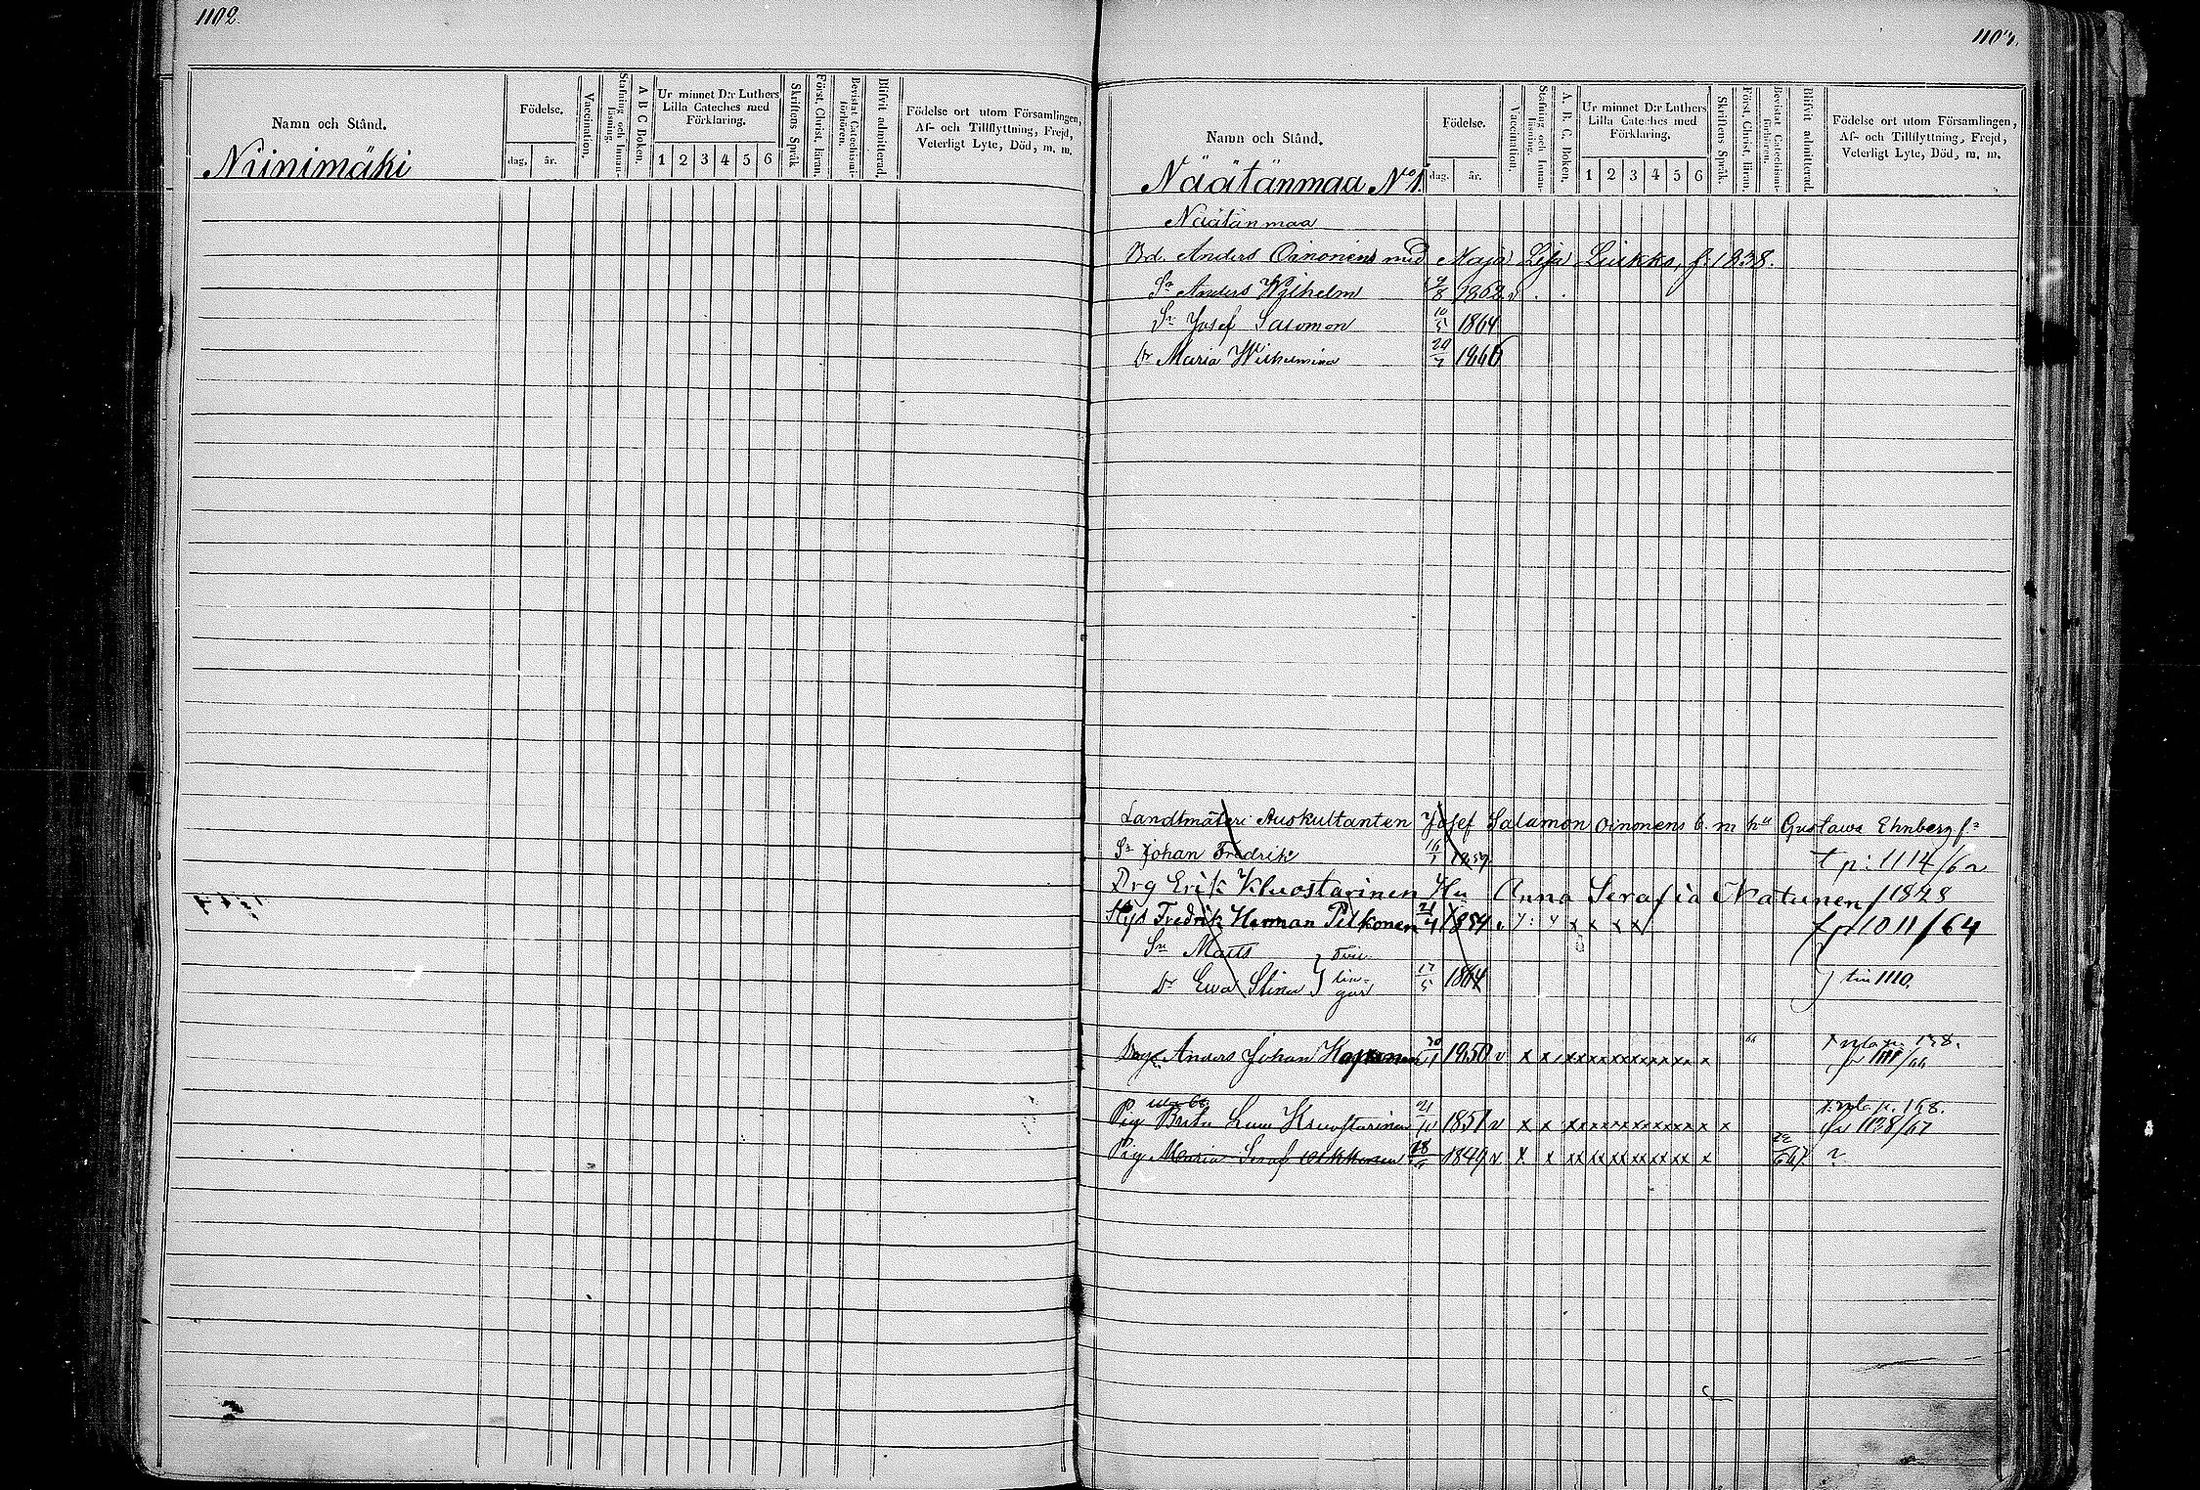 1102.
Namn och Stånd.
Födelse.
dag. år.
Vaccination.
Stafning och Innan-läsning.
A B C Boken.
Ur minnet D:r Luthers
Lilla Cateches med
Förklaring.
1 2 3 4 5 6
Skriftens Språk
Först. Christ. läran.
Bevistat Catechismi-förhören.
Blifvit admitterad.
Födelse ort utom Församlingen,
Af- och Tillflyttning, Frejd,
Veterligt Lyte, Död, m. m.
Niinimäki
1103.
Namn och Stånd.
Födelse.
dag. år.
Vaccination.
Stafning och Innan-läsning.
A. B. C. Boken.
Ur minnet D:r Luthers
Lilla Cateches med
Förklaring.
1 2 3 4 5 6
Skriftens Språk.
Först. Christ. läran.
Bevistat Catechismi-förhören.
Blifvit admitterad.
Födelse ort utom Församlingen,
Af- och Tillflyttning, Frejd,
Veterligt Lyte, Död, m. m.
Näätänmaa No 1.
Näätänmaa
Bd. Anders Oinonens med Maja Lisa Liukko, f. 1838.
Sn Anders Wilhelm 8 1862 v
Sn Josef Salomon 10/5 1864
Dr Maria Wilhelmina 20/7 1866
Landtmäteri Auskultanten Josef Salamon Oinonens b. m hu Gustawa Ehnberg
Sn Johan Fredrik 16 1859 t p: 1114/62
Drg Erik Kluostarinen Hu Anna Serafia Natunen f 1828
Hys Fredrik Herman Pitkonen 21/4 1854 v x x x x f p 1011/64
Sn Matts } Tvil-
Dr Ewa Stina } lin-gar 17/5 1864 } tin 1110.
Drg Anders Johan 20 1850 v x x x x x x x x x x x x x 66 p. 138.
1111/66
Pig Brita Luostarinen 21/10 1851 v x x x x x x x x x x x x x x p. 158.
1138/67
Pig Maria Seraf 18 1849 v x x x x x x x x x x x x 22/6 67. ?